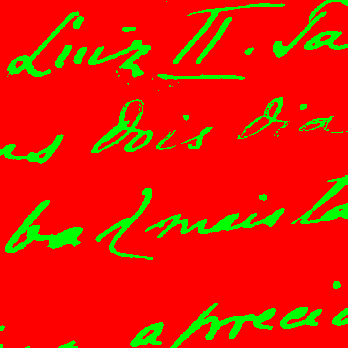 Luiz II. Sa
dois dia
ba mais ta
a preci